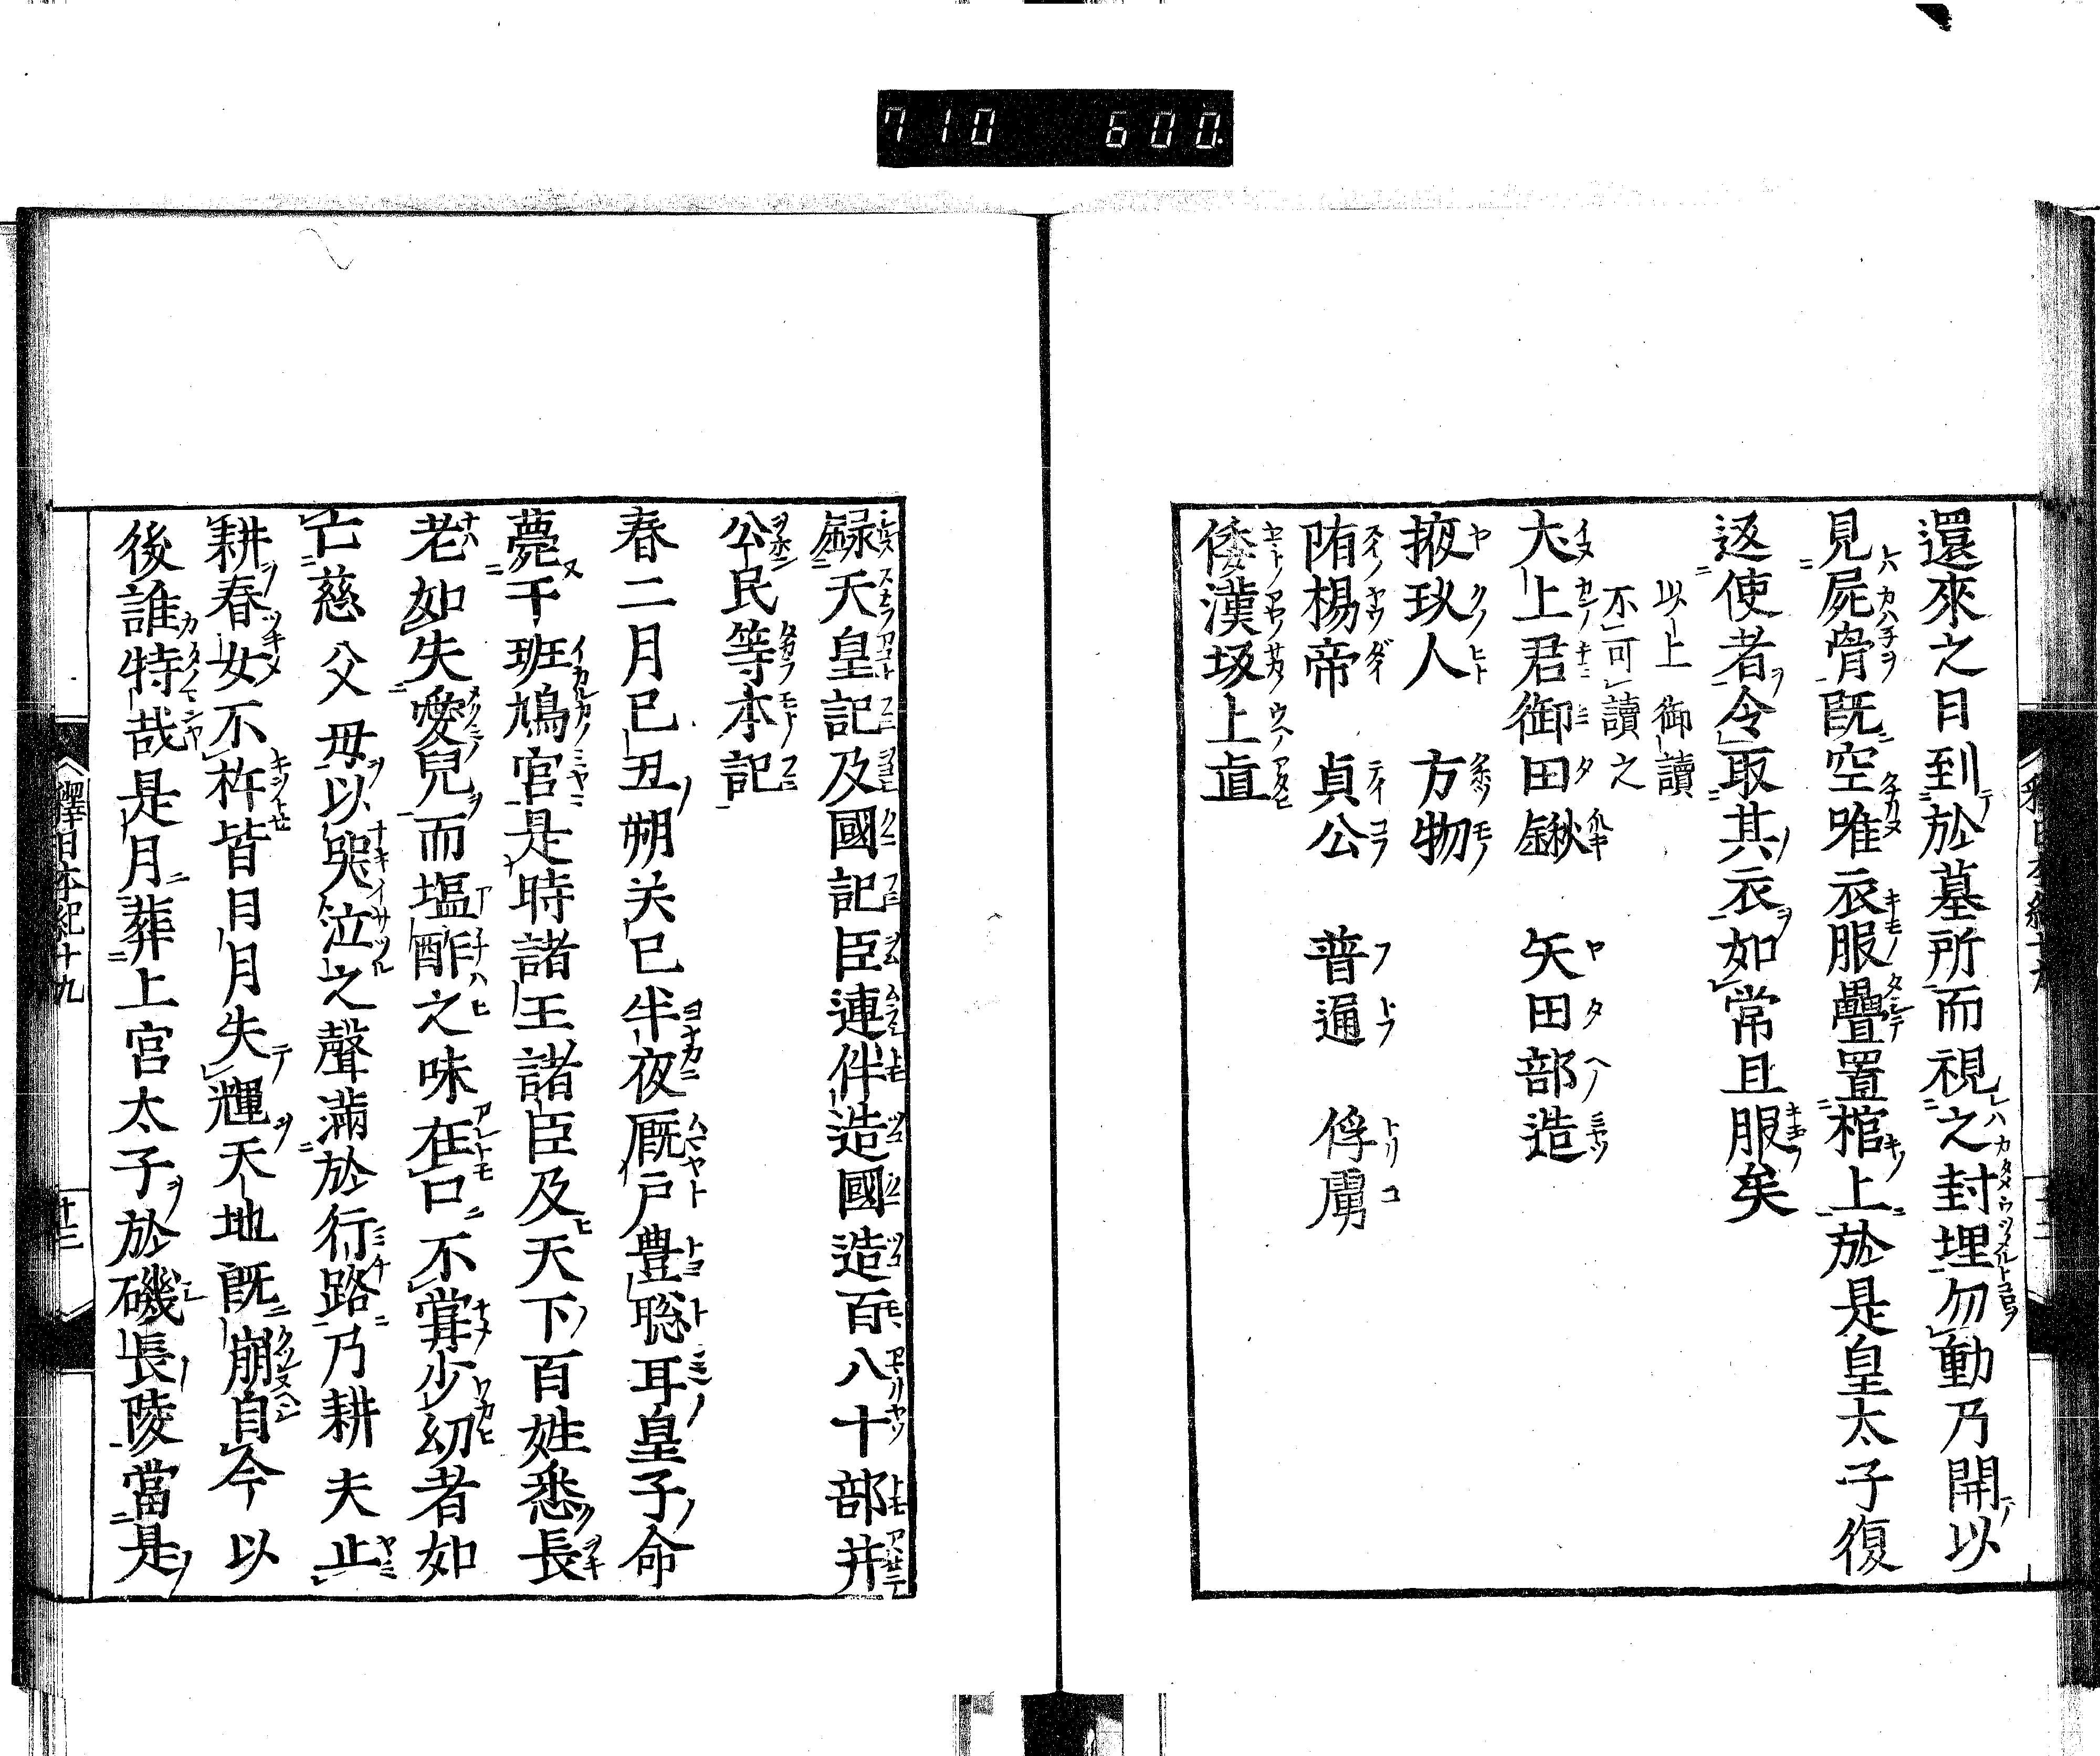 710 600.
還來之日到於墓所而視之封埋勿動乃開以
見屍骨既空唯衣服疊置棺上於是皇太子復
返使者令取其衣如常且服矣
以上御讀
不可讀之
犬上君御田鍬 矢田部造
掖玖人 方物
隋楊帝 貞公 普通 俘虜
倭漢坂上直
録天皇記及國記臣連伴造國造百八十部幷
公民等本記
春二月已丑朔癸巳半夜厩戸豊聡耳皇子命
薨于班鳩宮是時諸王諸臣及天下百姓悉長
老如失愛兒而塩酢之味在口不甞少幼者如
亡慈父毋以哭泣之聲滿於行路乃耕夫止
耕舂女不杵皆曰日月失輝天地既崩自今以
後誰恃哉是月葬上宮太子於磯長陵當是
釋日本紀十九